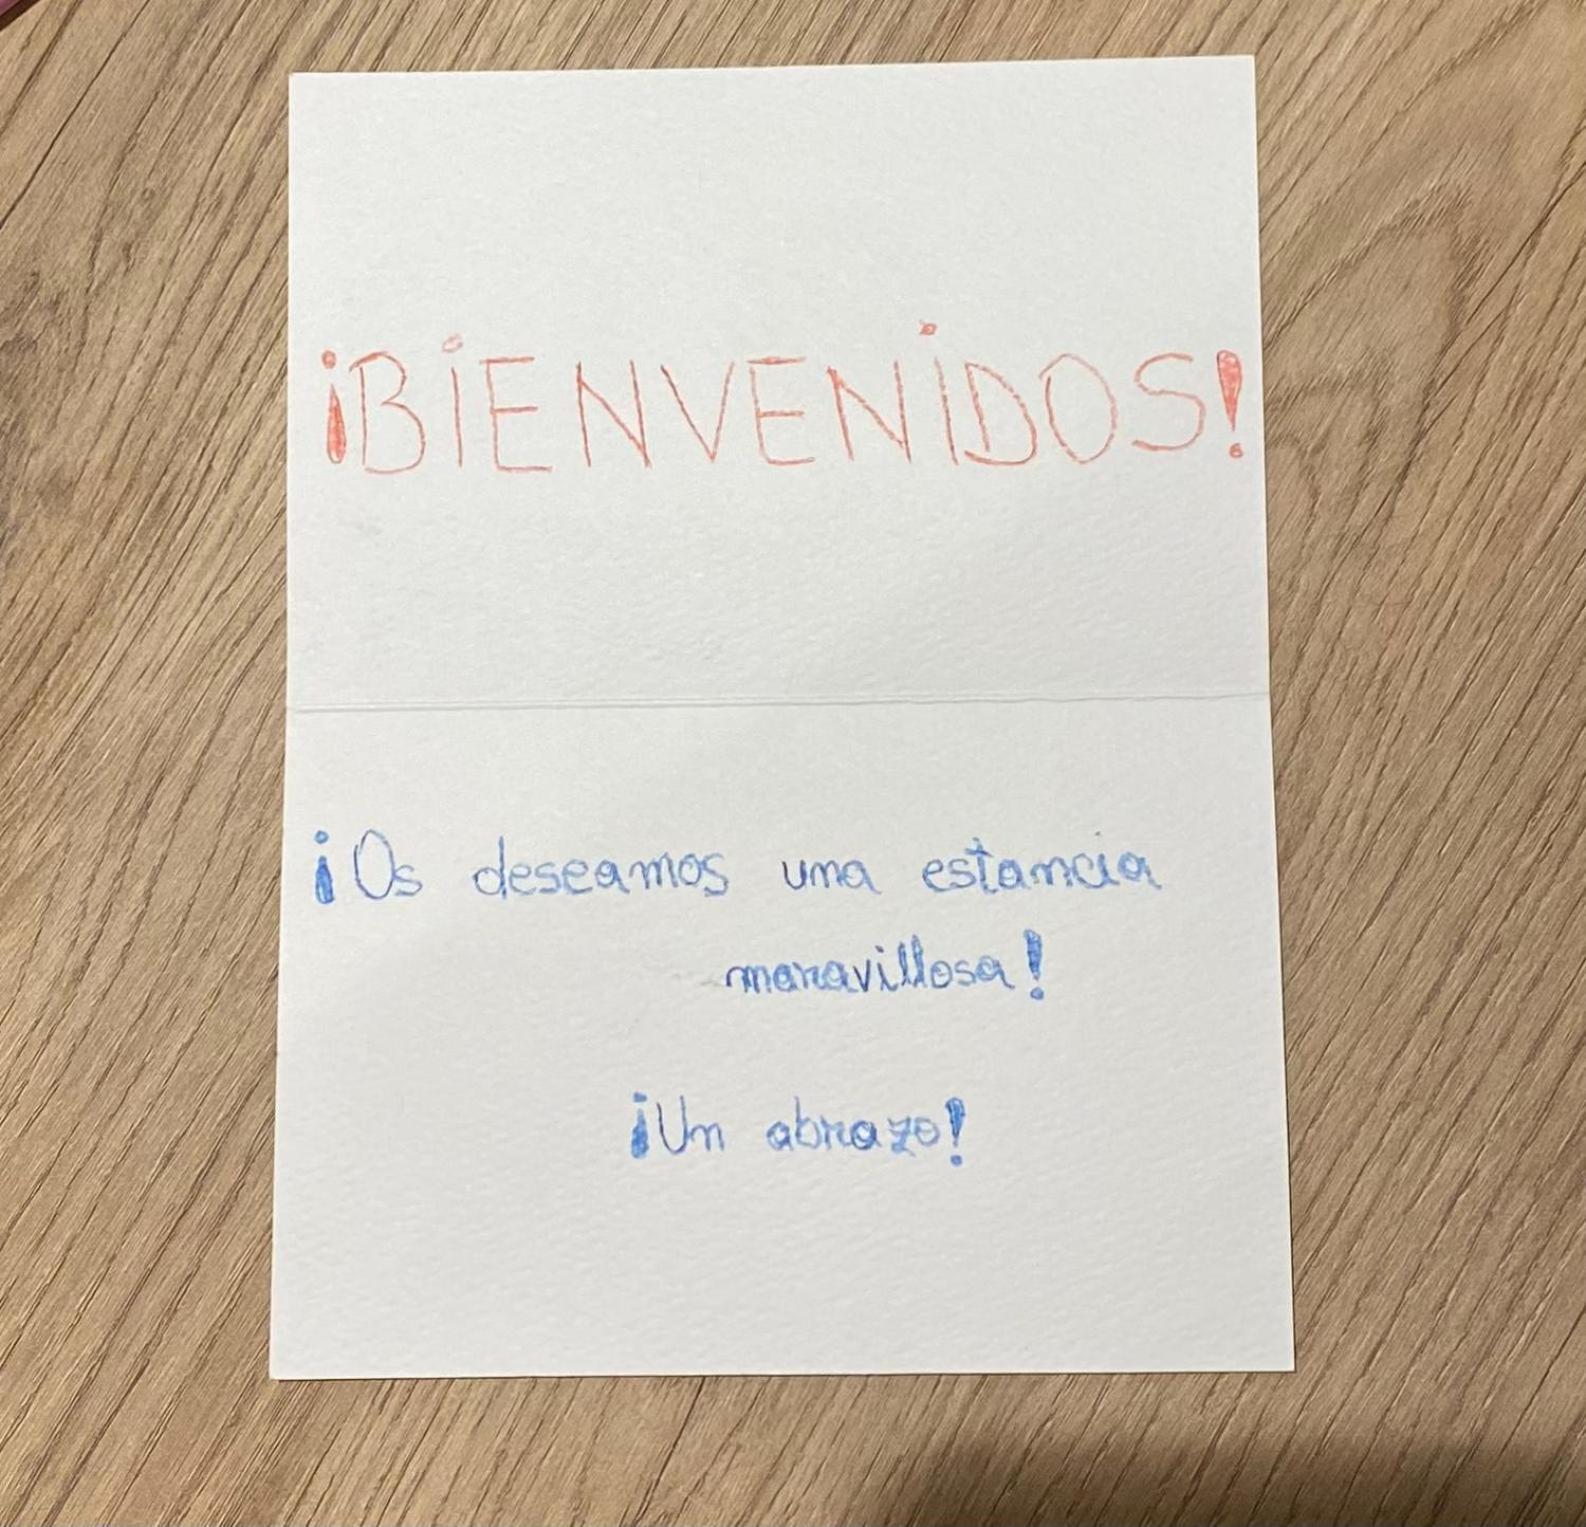 ¡BIENVENIDOS!
¡Os deseamos una estancia
maravillosa!
¡Un abrazo!